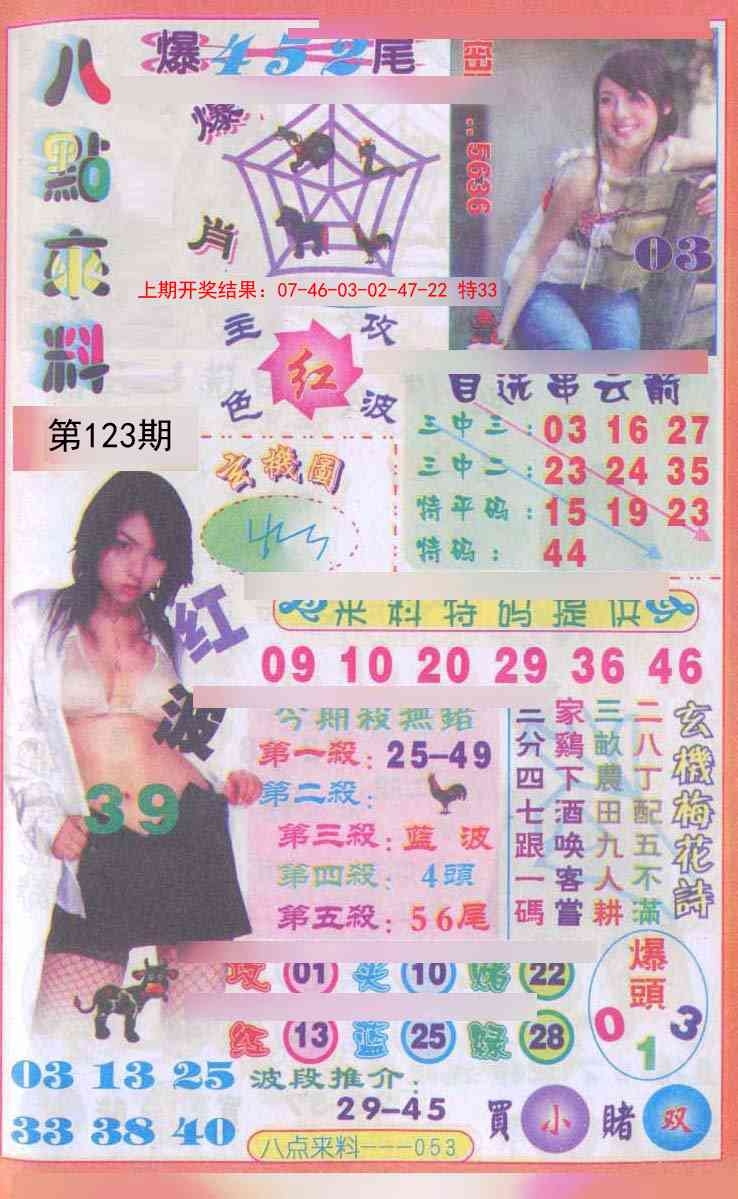 八點來料
爆452尾
爆肖
5636
03
上期开奖结果：07-46-03-02-47-22 特33
主攻
红
色波
第123期
自选串云箭
三中三：03 16 27
三中二：23 24 35
特平码：15 19 23
特码：44
玄機圖
红波
39
来料特码提供
09 10 20 29 36 46
今期殺無錯
第一殺：25-49
第二殺：
第三殺：蓝波
第四殺：4頭
第五殺：56尾
玄機梅花詩
二八丁配五不滿
三畝農田九人耕
家鷄下酒唤客嘗
二分四七跟一碼
攻 01 买 10 赌 22
红 13 蓝 25 绿 28
爆頭
0 1 3
03 13 25
33 38 40
波段推介：
29-45
買小賭双
八点来料---053